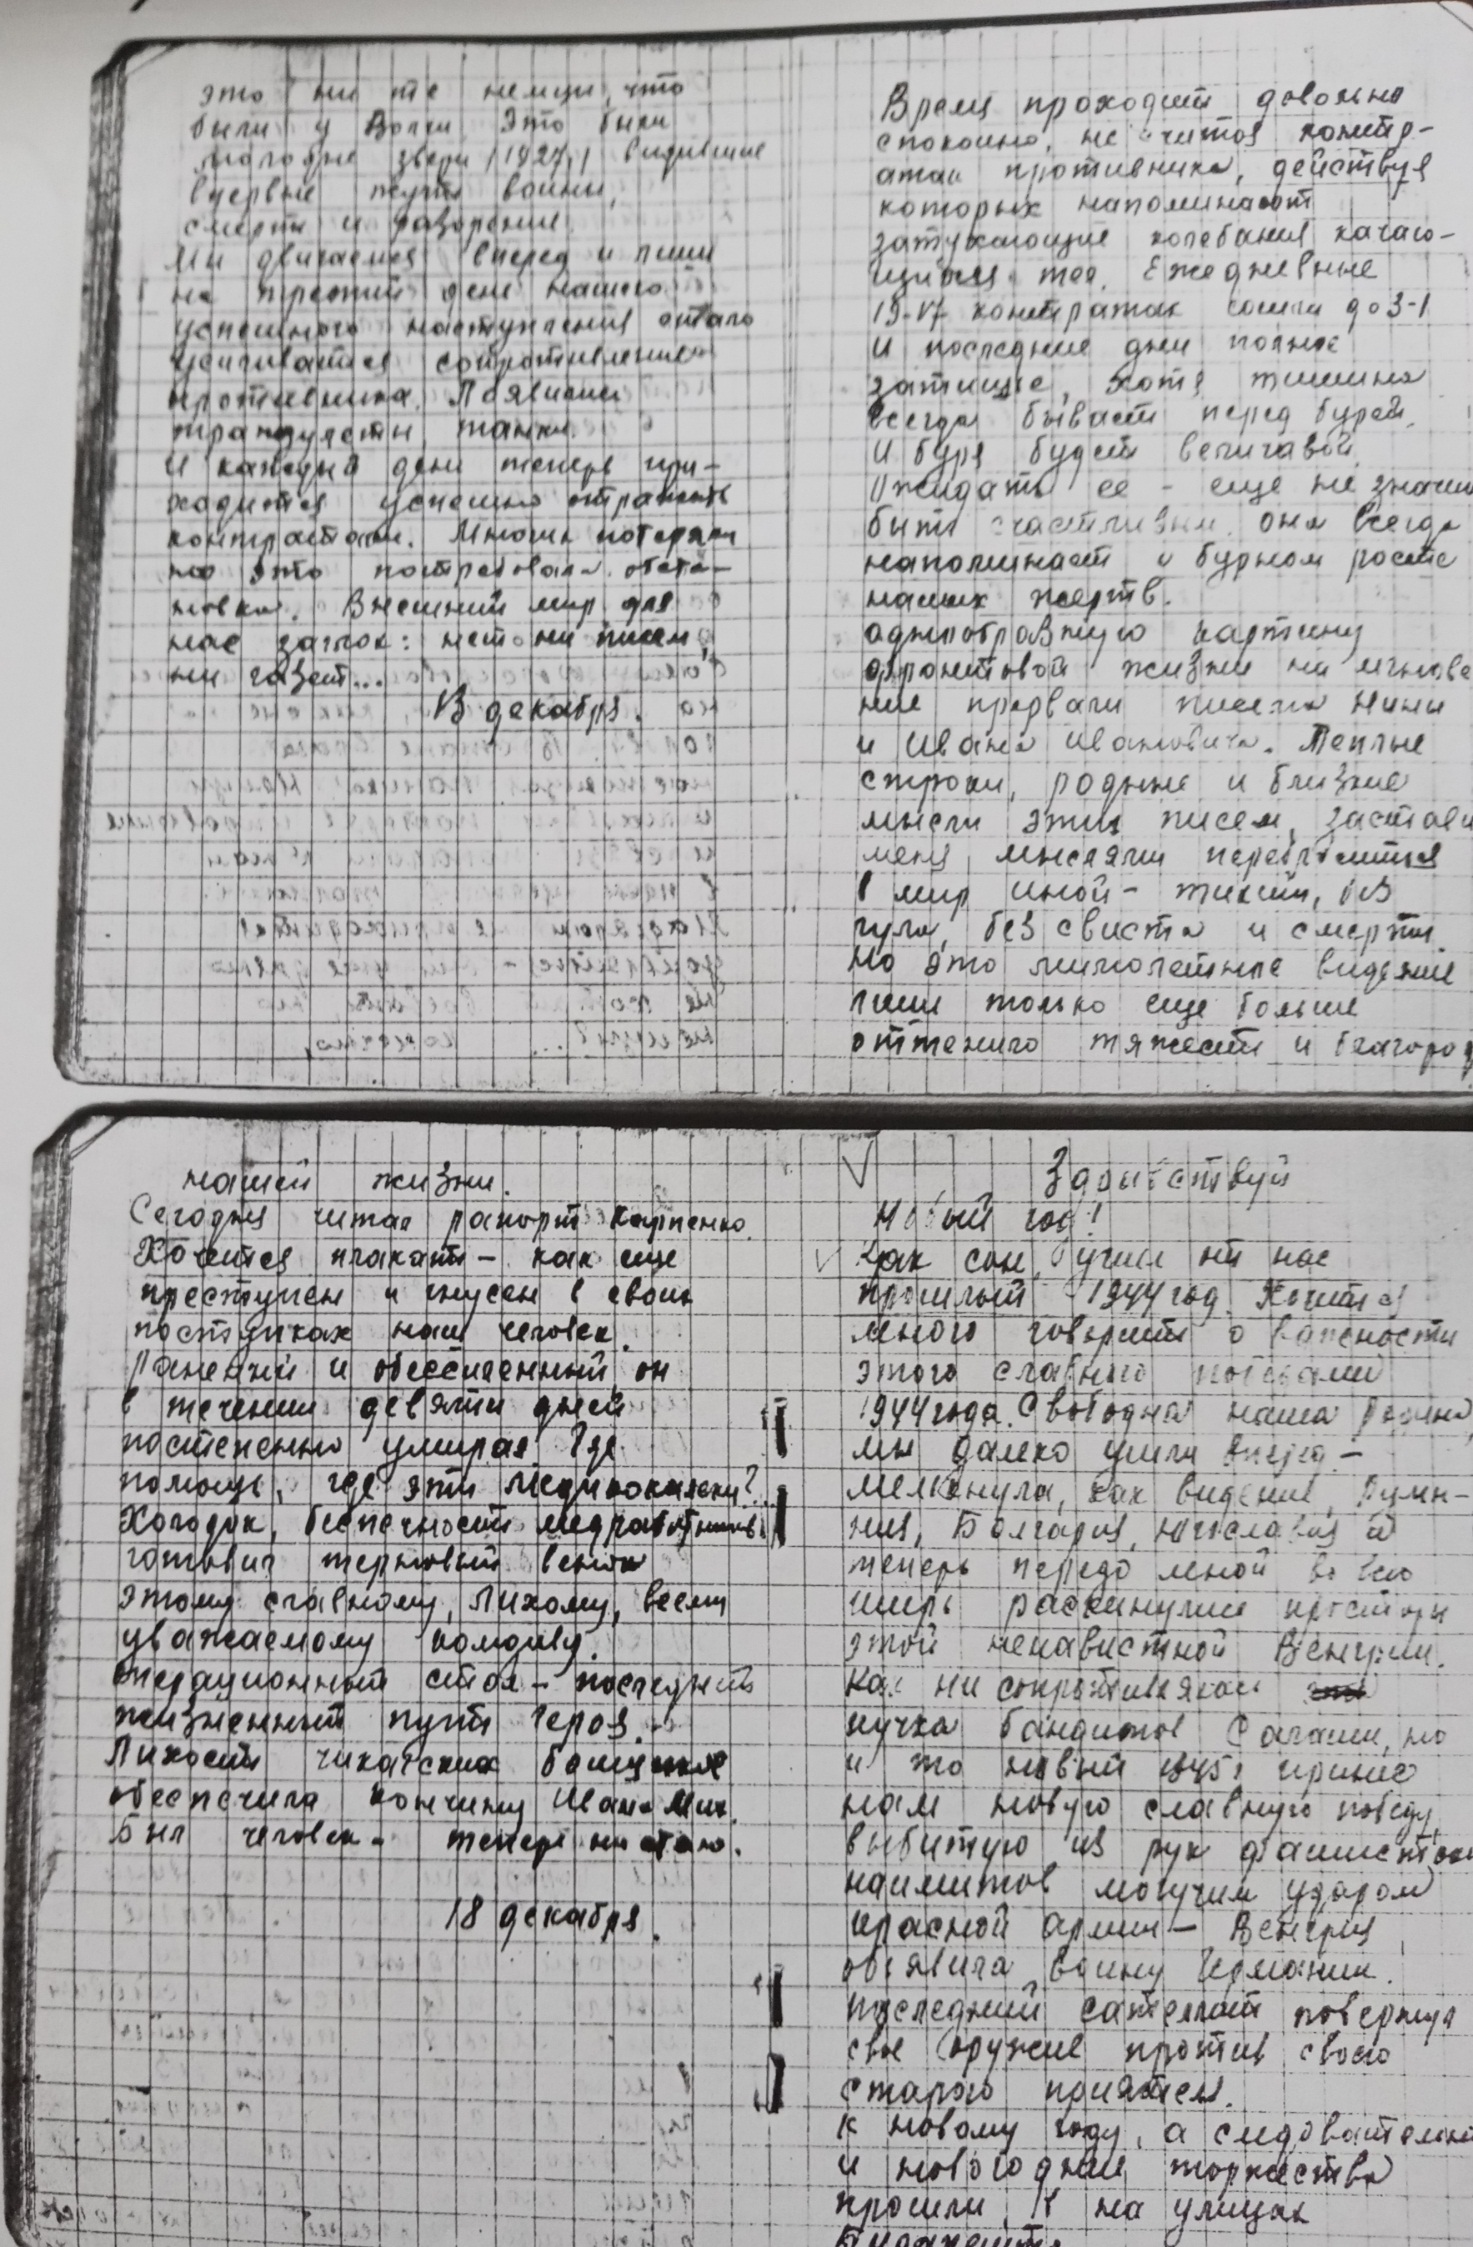 это ни те немцы, что
были у Волги. Это были
молодые звери /1927г/ видившие
впервые жути войны,
смерти и разорение.
Мы двигаемся вперед и лиш
на третий день нашего
успешного наступления стало
усиливатся сопротивление
противника. Появились
танки.
И каждый день теперь при-
ходится успешно отражать
контратаки. Многих потеряли
но это потребовала обста-
новка. Внешний мир для
нас замок: нет ни писем,
ни газет...
13 декабря.
Время проходит довольно
спокойно, не считая контр-
атак противника, действуя
которых напоминают
затухающие колебания качаю-
щихся тел. Ежедневные
19-17 контратак сошли до 3-1
и последние дни полное
затишье, хотя тишина
всегда бывает перед бурей.
И буря будет величавой.
Ожидать ее - еще не значит
быть счастливым. она всегда
напоминает о бурном росте
наших жертв.
однообразную картину
фронтовой жизни на мгнове
ние прервали письма Нины
и Ивана Ивановича. Теплые
строки, родные и близкие
мысли этих писем, застави
меня мыслями
в мир иной - тихий, без
гула, без свиста и смерти
но это мимолетное видение
лиш только еще больше
оттенило тяжести и благород
нашей жизни.
Сегодня читал рапорт Карпенко.
Хочется плакать - как еще
преступен и гнусен в своих
поступках наш человек.
Раненый и обессиленный, он
в течении девяти дней
постепенно умирал. Где
помощь, где эти
Холодок, беспечность медработников
готовил терновый венок
этому славному, лихому, всеми
уважаемому комдиву.
Операционный стол - последний
жизненный путь героя.
Лихость
обеспечила кончину Ивана Мих.
Был человек - теперь ни стало.
18 декабря.
Здравствуй
Новый год!
Как сон, ушел от нас
прошлый 1944 год. Хочится
много говорить о важности
этого славного победами
1944 года. Свободна наша Родина,
мы далеко ушли вперед -
мелькнула, как видение, Румы-
ния, Болгария, Югославия и
теперь передо мной во всю
ширь раскинулись просторы
этой ненавистной Венгрии.
Как ни сопротивлялась
кучка бандитов Салаши, но
и то новый 1945г принес
нам новую славную победу,
выбитую из рук фашистски
наймитов могучим ударом
красной армии - Венгрия
объявила войну Германии.
Последний сателлит повернул
свое оружие против своего
старого приятеля.
К новому году, а следовательно
и новогодние торжества
прошли на улицах
Будапешта